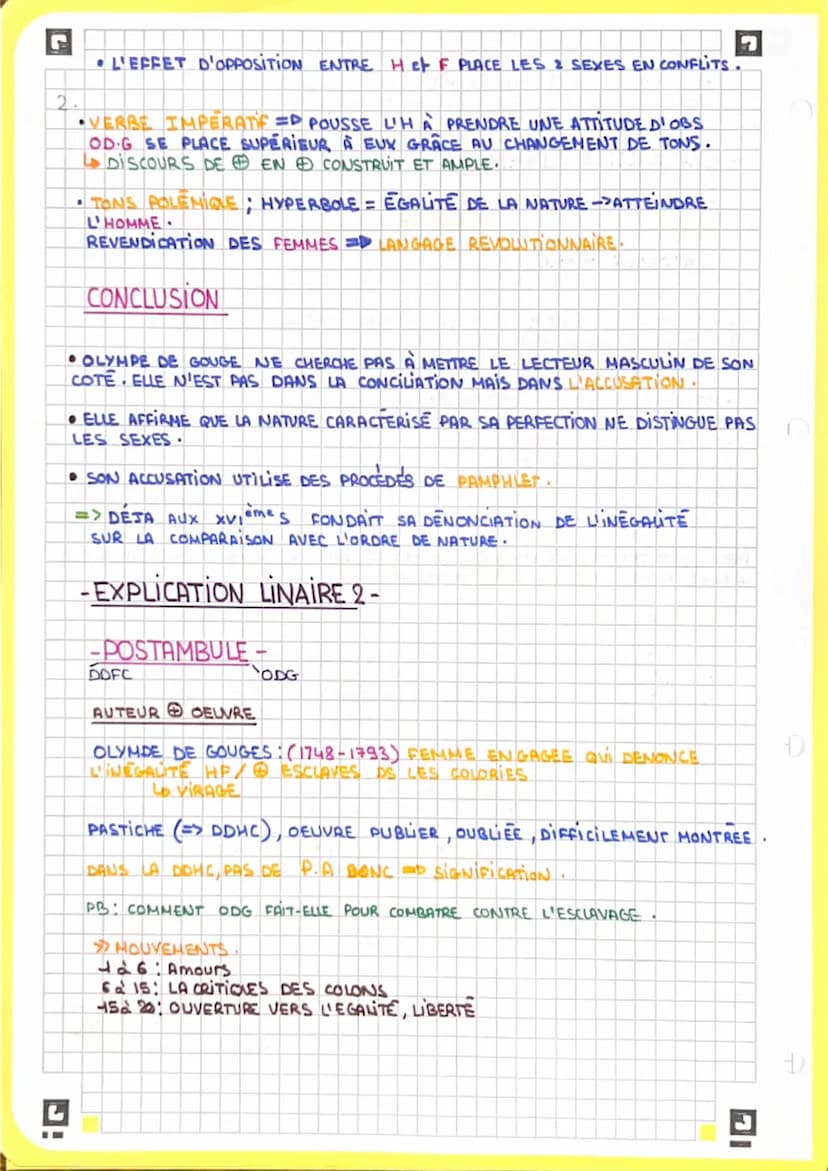 • L'EFFET D'OPPOSITION ENTRE H et F PLACE LES 2 SEXES EN CONFLITS.
2.
• VERBE IMPÉRATIF => POUSSE L'H À PRENDRE UNE ATTITUDE D'OBS
OD.G SE PLACE SUPÉRIEUR À EUX GRÂCE AU CHANGEMENT DE TONS.
↳ DISCOURS DE ⊕ EN ⊕ CONSTRUIT ET AMPLE.
• TONS POLÉMIQUE ; HYPERBOLE = ÉGALITÉ DE LA NATURE -> ATTEINDRE
L'HOMME.
REVENDICATION DES FEMMES => LANGAGE REVOLUTIONNAIRE.
CONCLUSION
• OLYMPE DE GOUGE NE CHERCHE PAS À METTRE LE LECTEUR MASCULIN DE SON
COTÉ. ELLE N'EST PAS DANS LA CONCILIATION MAIS DANS L'ACCUSATION.
• ELLE AFFIRME QUE LA NATURE CARACTERISÉ PAR SA PERFECTION NE DISTINGUE PAS
LES SEXES.
• SON ACCUSATION UTILISE DES PROCÉDÉS DE PAMPHLET.
=> DÉJA AUX XVIèmes FONDAIT SA DÉNONCIATION DE L'INÉGALITÉ
SUR LA COMPARAISON AVEC L'ORDRE DE NATURE.
- EXPLICATION LINAIRE 2 -
- POSTAMBULE -
DDFC ODG
AUTEUR ⊕ OEUVRE
OLYMDE DE GOUGES : (1748-1793) FEMME ENGAGEE QUI DENONCE
L'INÉGALITÉ HF/ ⊕ ESCLAVES DS LES COLORIES
↳ VIRAGE
PASTICHE (=> DDHC), OEUVRE PUBLIER, OUBLIÉE, DIFFICILEMENT MONTRÉE.
DANS LA DDHC, PAS DE P.A DONC => SIGNIFICATION.
PB: COMMENT ODG FAIT-ELLE POUR COMBATRE CONTRE L'ESCLAVAGE.
>> MOUVEMENTS.
1 à 6 : Amours
6 à 15: LA CRITIQUES DES COLONS
15 à 20: OUVERTURE VERS L'EGALITÉ, LIBERTÉ